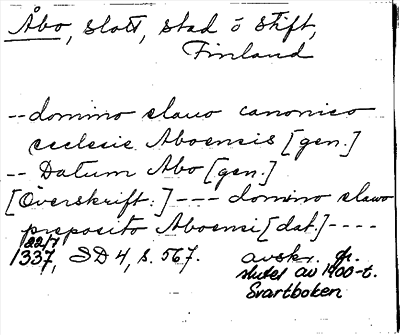 Åbo, slott, stad o stift,
Finland
-- domino slauo canonico
ecclesie Aboensis [gen.]
-- Datum Abo [gen.]
[Överskrift:] --- domino slawo
preposito Aboensi [dat.] ----
22/7
1337, SD 4, s. 567. avskr. fr.
slutet av 1400-t.
Svartboken